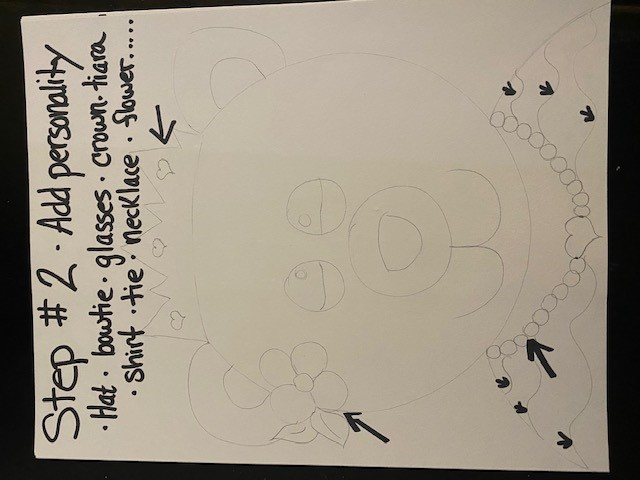 Step # 2 · Add personality
· Hat · bowtie · glasses · crown · tiara
· shirt · tie · necklace · flower.....